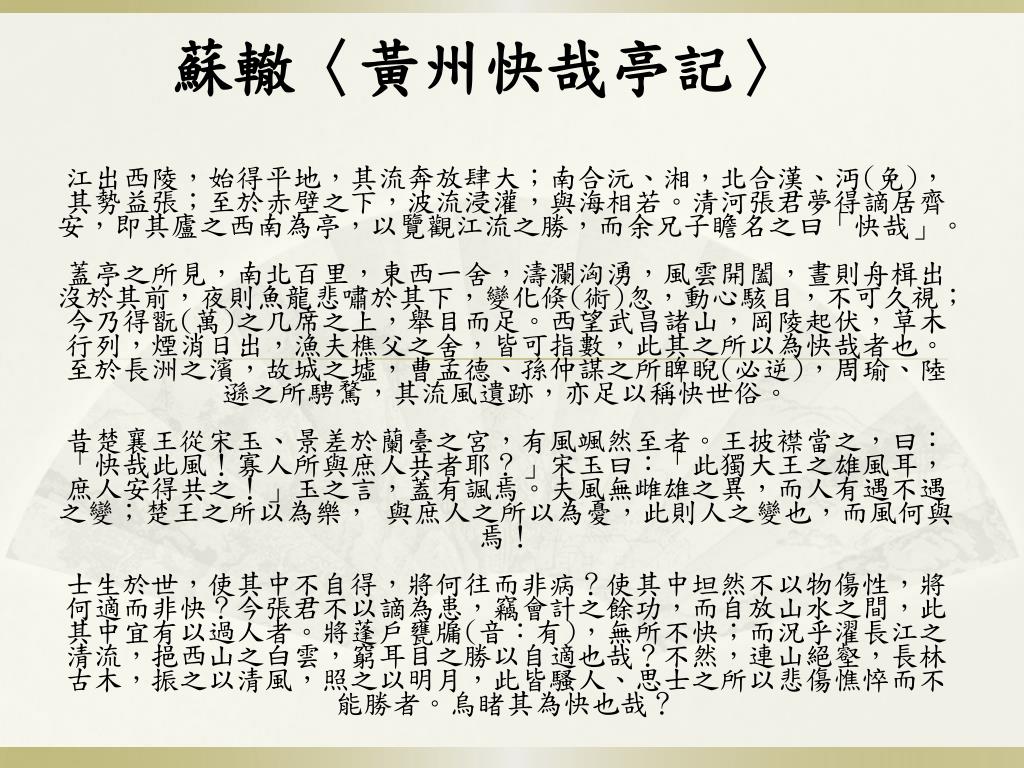 蘇轍〈黃州快哉亭記〉
江出西陵，始得平地，其流奔放肆大；南合沅、湘，北合漢、沔(免)，
其勢益張；至於赤壁之下，波流浸灌，與海相若。清河張君夢得謫居齊
安，即其廬之西南為亭，以覽觀江流之勝，而余兄子瞻名之曰「快哉」。
蓋亭之所見，南北百里，東西一舍，濤瀾洶湧，風雲開闔，晝則舟楫出
沒於其前，夜則魚龍悲嘯於其下，變化倏(術)忽，動心駭目，不可久視；
今乃得翫(萬)之几席之上，舉目而足。西望武昌諸山，岡陵起伏，草木
行列，煙消日出，漁夫樵父之舍，皆可指數，此其之所以為快哉者也。
至於長洲之濱，故城之墟，曹孟德、孫仲謀之所睥睨(必逆)，周瑜、陸
遜之所騁騖，其流風遺跡，亦足以稱快世俗。
昔楚襄王從宋玉、景差於蘭臺之宮，有風颯然至者。王披襟當之，曰：
「快哉此風！寡人所與庶人共者耶？」宋玉曰：「此獨大王之雄風耳，
庶人安得共之！」玉之言，蓋有諷焉。夫風無雌雄之異，而人有遇不遇
之變；楚王之所以為樂， 與庶人之所以為憂，此則人之變也，而風何與
焉！
士生於世，使其中不自得，將何往而非病？使其中坦然不以物傷性，將
何適而非快？今張君不以謫為患，竊會計之餘功，而自放山水之間，此
其中宜有以過人者。將蓬戶甕牖(音：有)，無所不快；而況乎濯長江之
清流，挹西山之白雲，窮耳目之勝以自適也哉？不然，連山絕壑，長林
古木，振之以清風，照之以明月，此皆騷人、思士之所以悲傷憔悴而不
能勝者。烏睹其為快也哉？